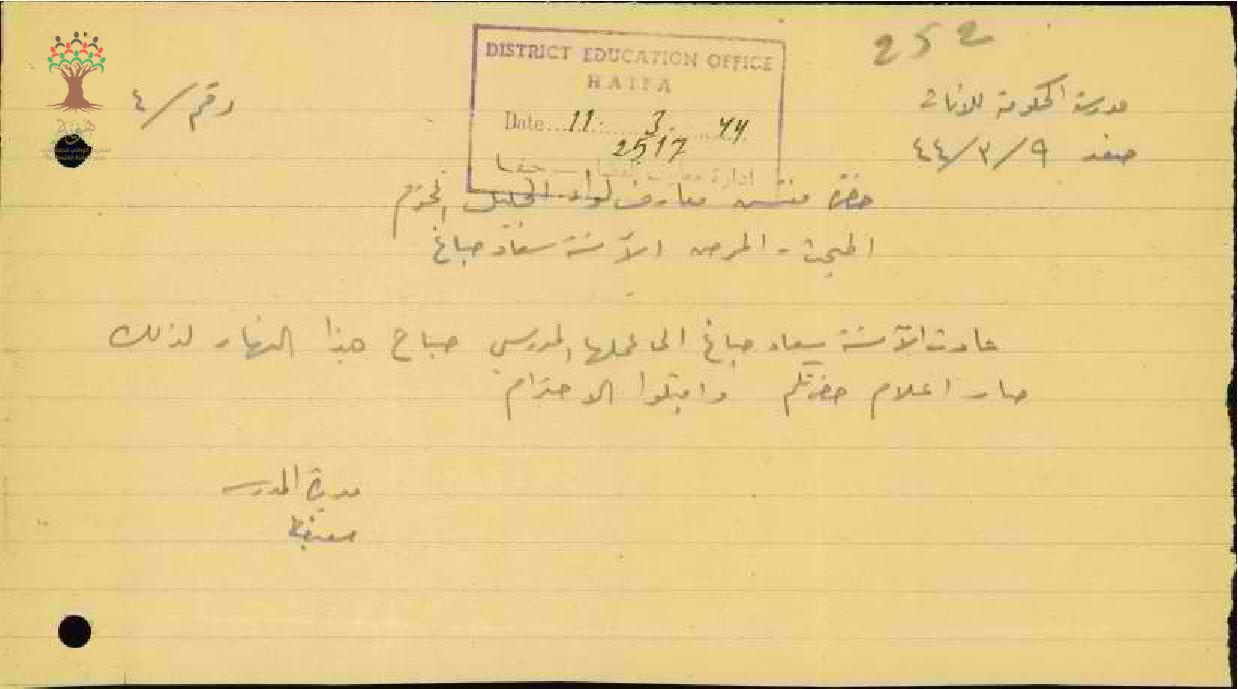 252
DISTRICT EDUCATION OFFICE
HAIFA
Date 11. 3. 44
2517
ادارة معارف لواء حيفا
مدرسة الحكومة للاناث
رقم / ٤
صفد ٩ / ٣ / ٤٤
حضرة مفتش معارف لواء الجليل المحترم
المبحث - المرض الآنسة سعاد صباغ
عادت الآنسة سعاد صباغ الى عملها المدرسي صباح هذا النهار لذلك
صار اعلام حضرتكم واقبلوا الاحترام
مديرة المدرسة
هوية